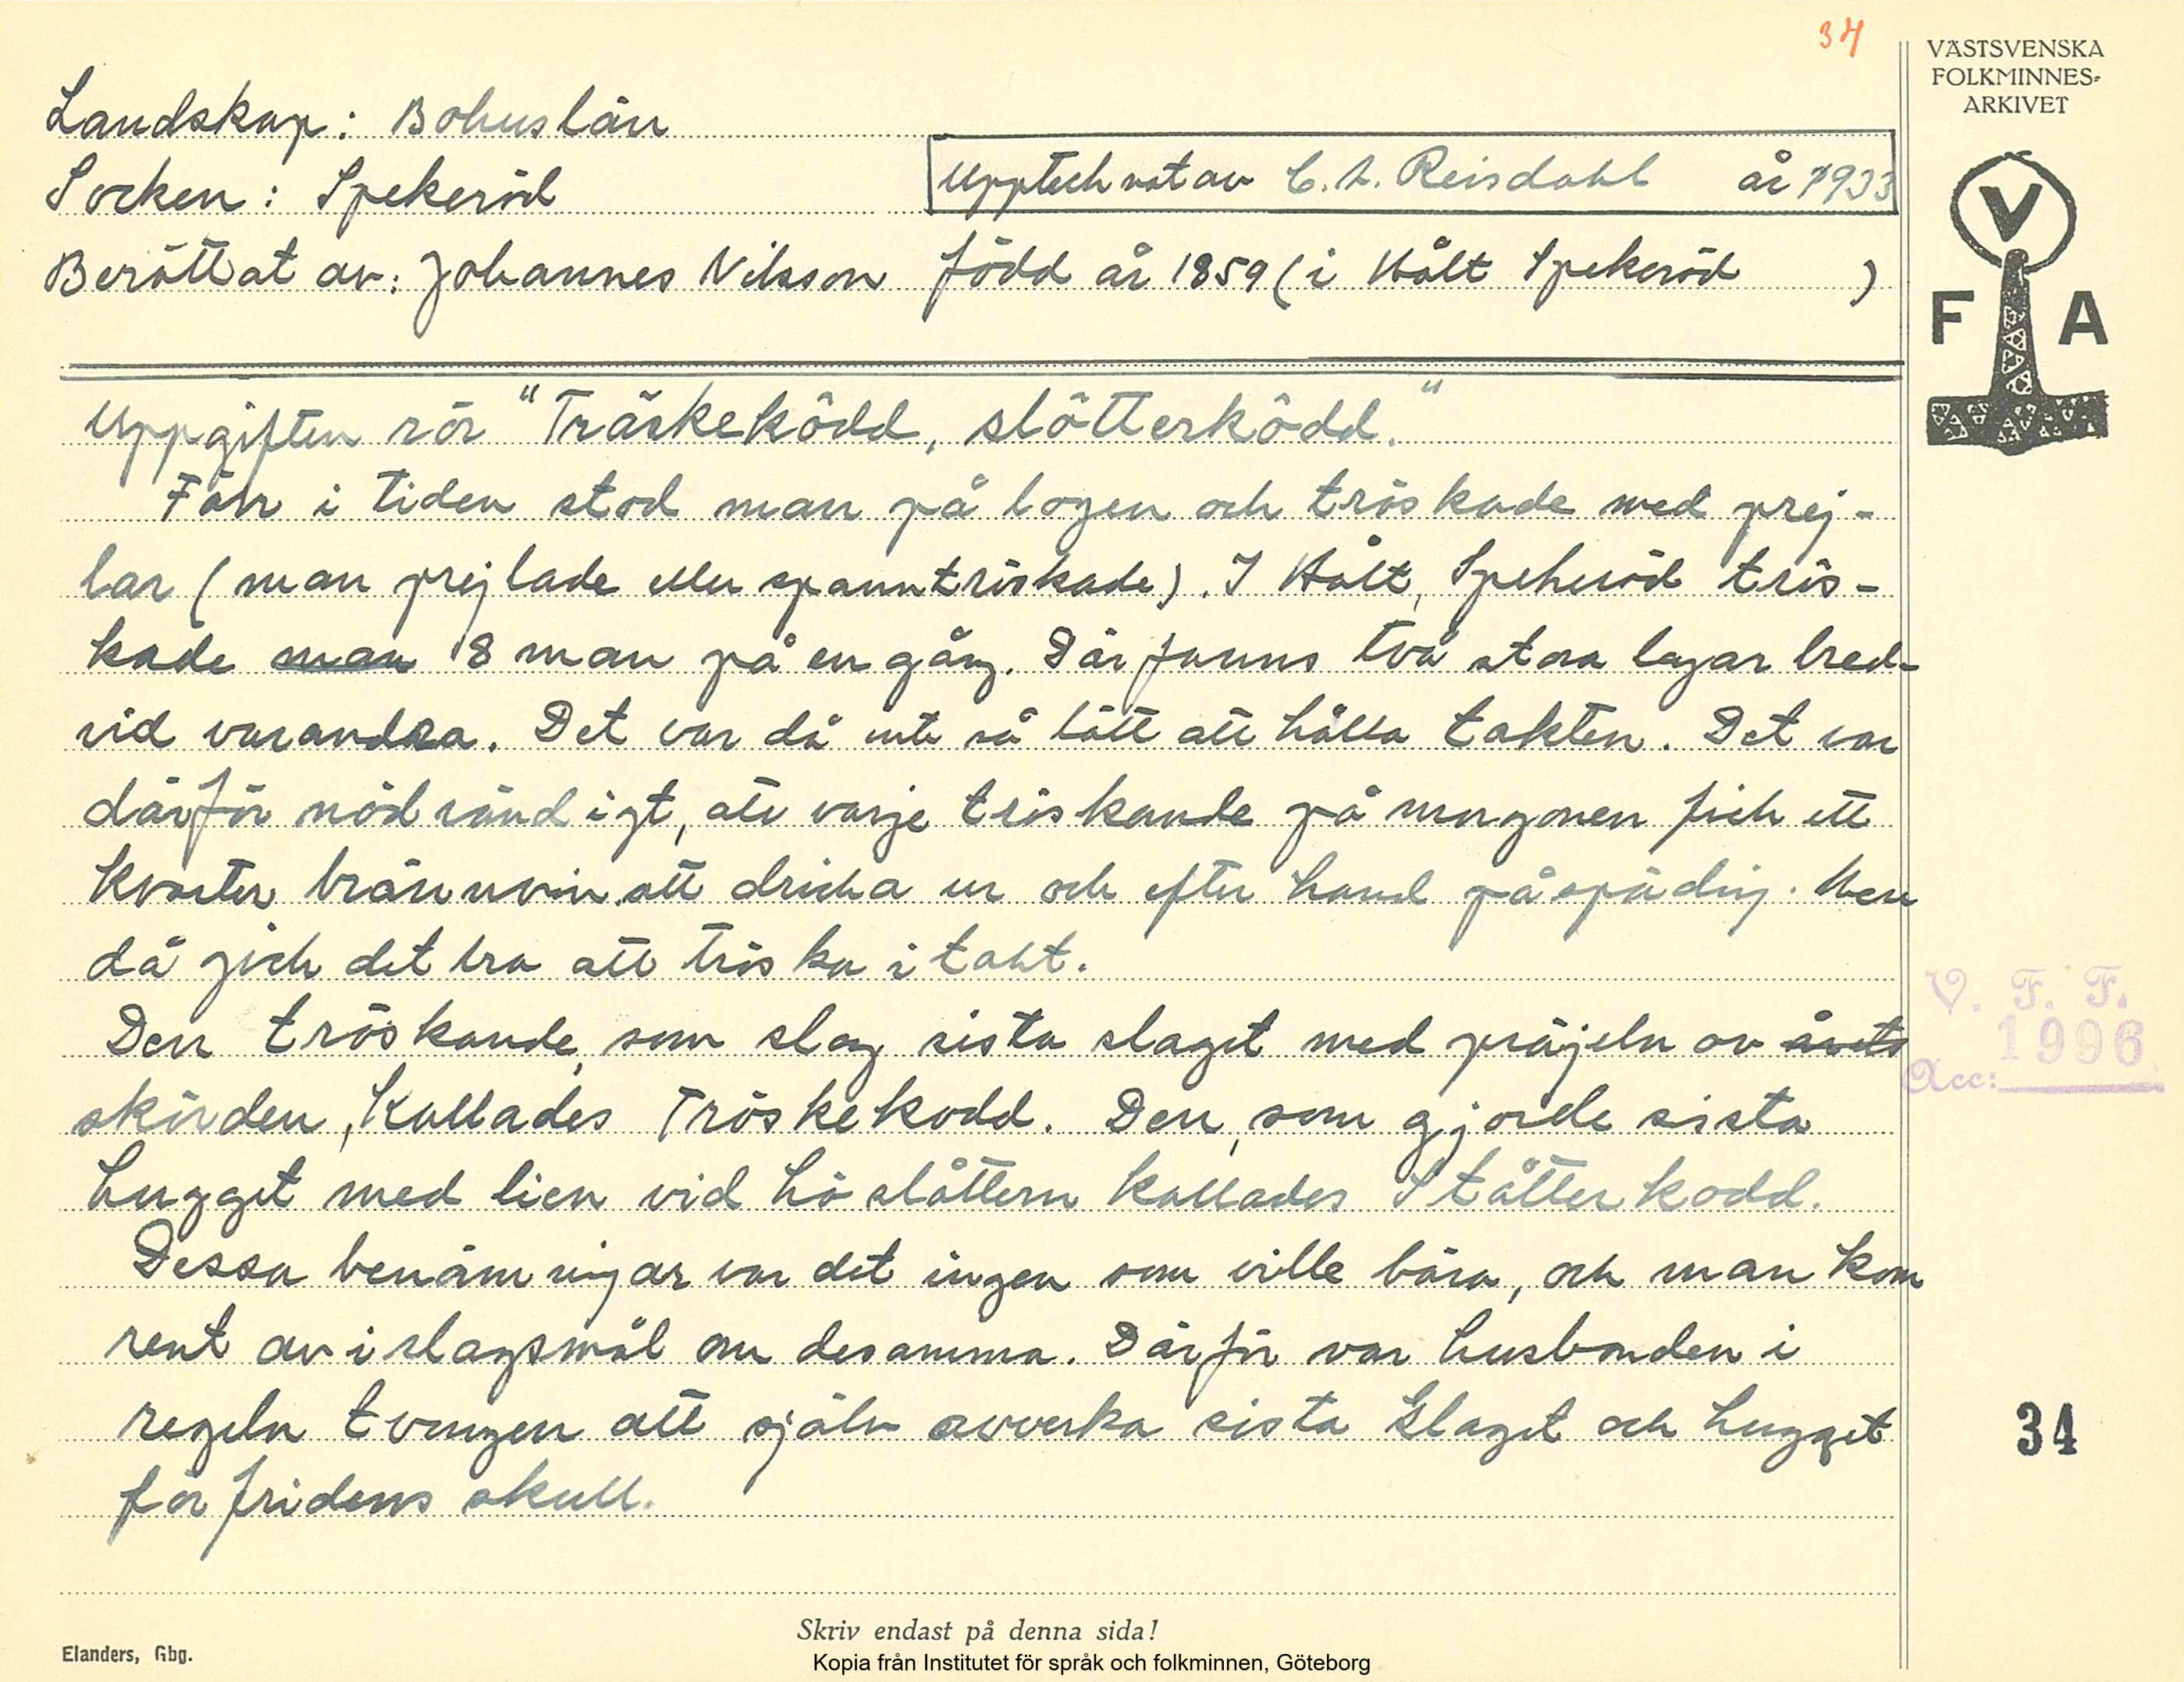 34
VÄSTSVENSKA
FOLKMINNES-
ARKIVET
Landskap: Bohuslän
Upptecknat av C. A. Reisdahl år 1933
Socken: Spekeröd
Berättat av: Johannes Nilsson född år 1859 (i Hålt Spekeröd )
V
F A
Uppgiften rör "Träskeködd, slötterködd."
Förr i tiden stod man på logen och tröskade med prej-
lar (man prejlade eller spanntröskade). I Hålt, Spekeröd trös-
kade man 8 man på en gång. Där fanns två stora logar bred-
vid varandra. Det var då inte så lätt att hålla takten. Det var
därför nödvändigt, att varje tröskande på morgonen fick ett
kvarter brännvin att dricka ur och efter hand påspädnig. Men
då gick det bra att tröska i takt.
Den tröskande, som slog sista slaget med präjeln av årets
skörden, kallades Tröskekodd. Den, som gjorde sista
hugget med lien vid höslåttern kallades Slåtterkodd.
Dessa benämnigar var det ingen som ville bära, och man kom
rent av i slagsmål om desamma. Därför var husbonden i
regeln tvungen att själv avverka sista slaget och hugget
för fridens skull.
V. F. T.
1996
Acc:
34
Skriv endast på denna sida!
Elanders, Gbg.
Kopia från Institutet för språk och folkminnen, Göteborg